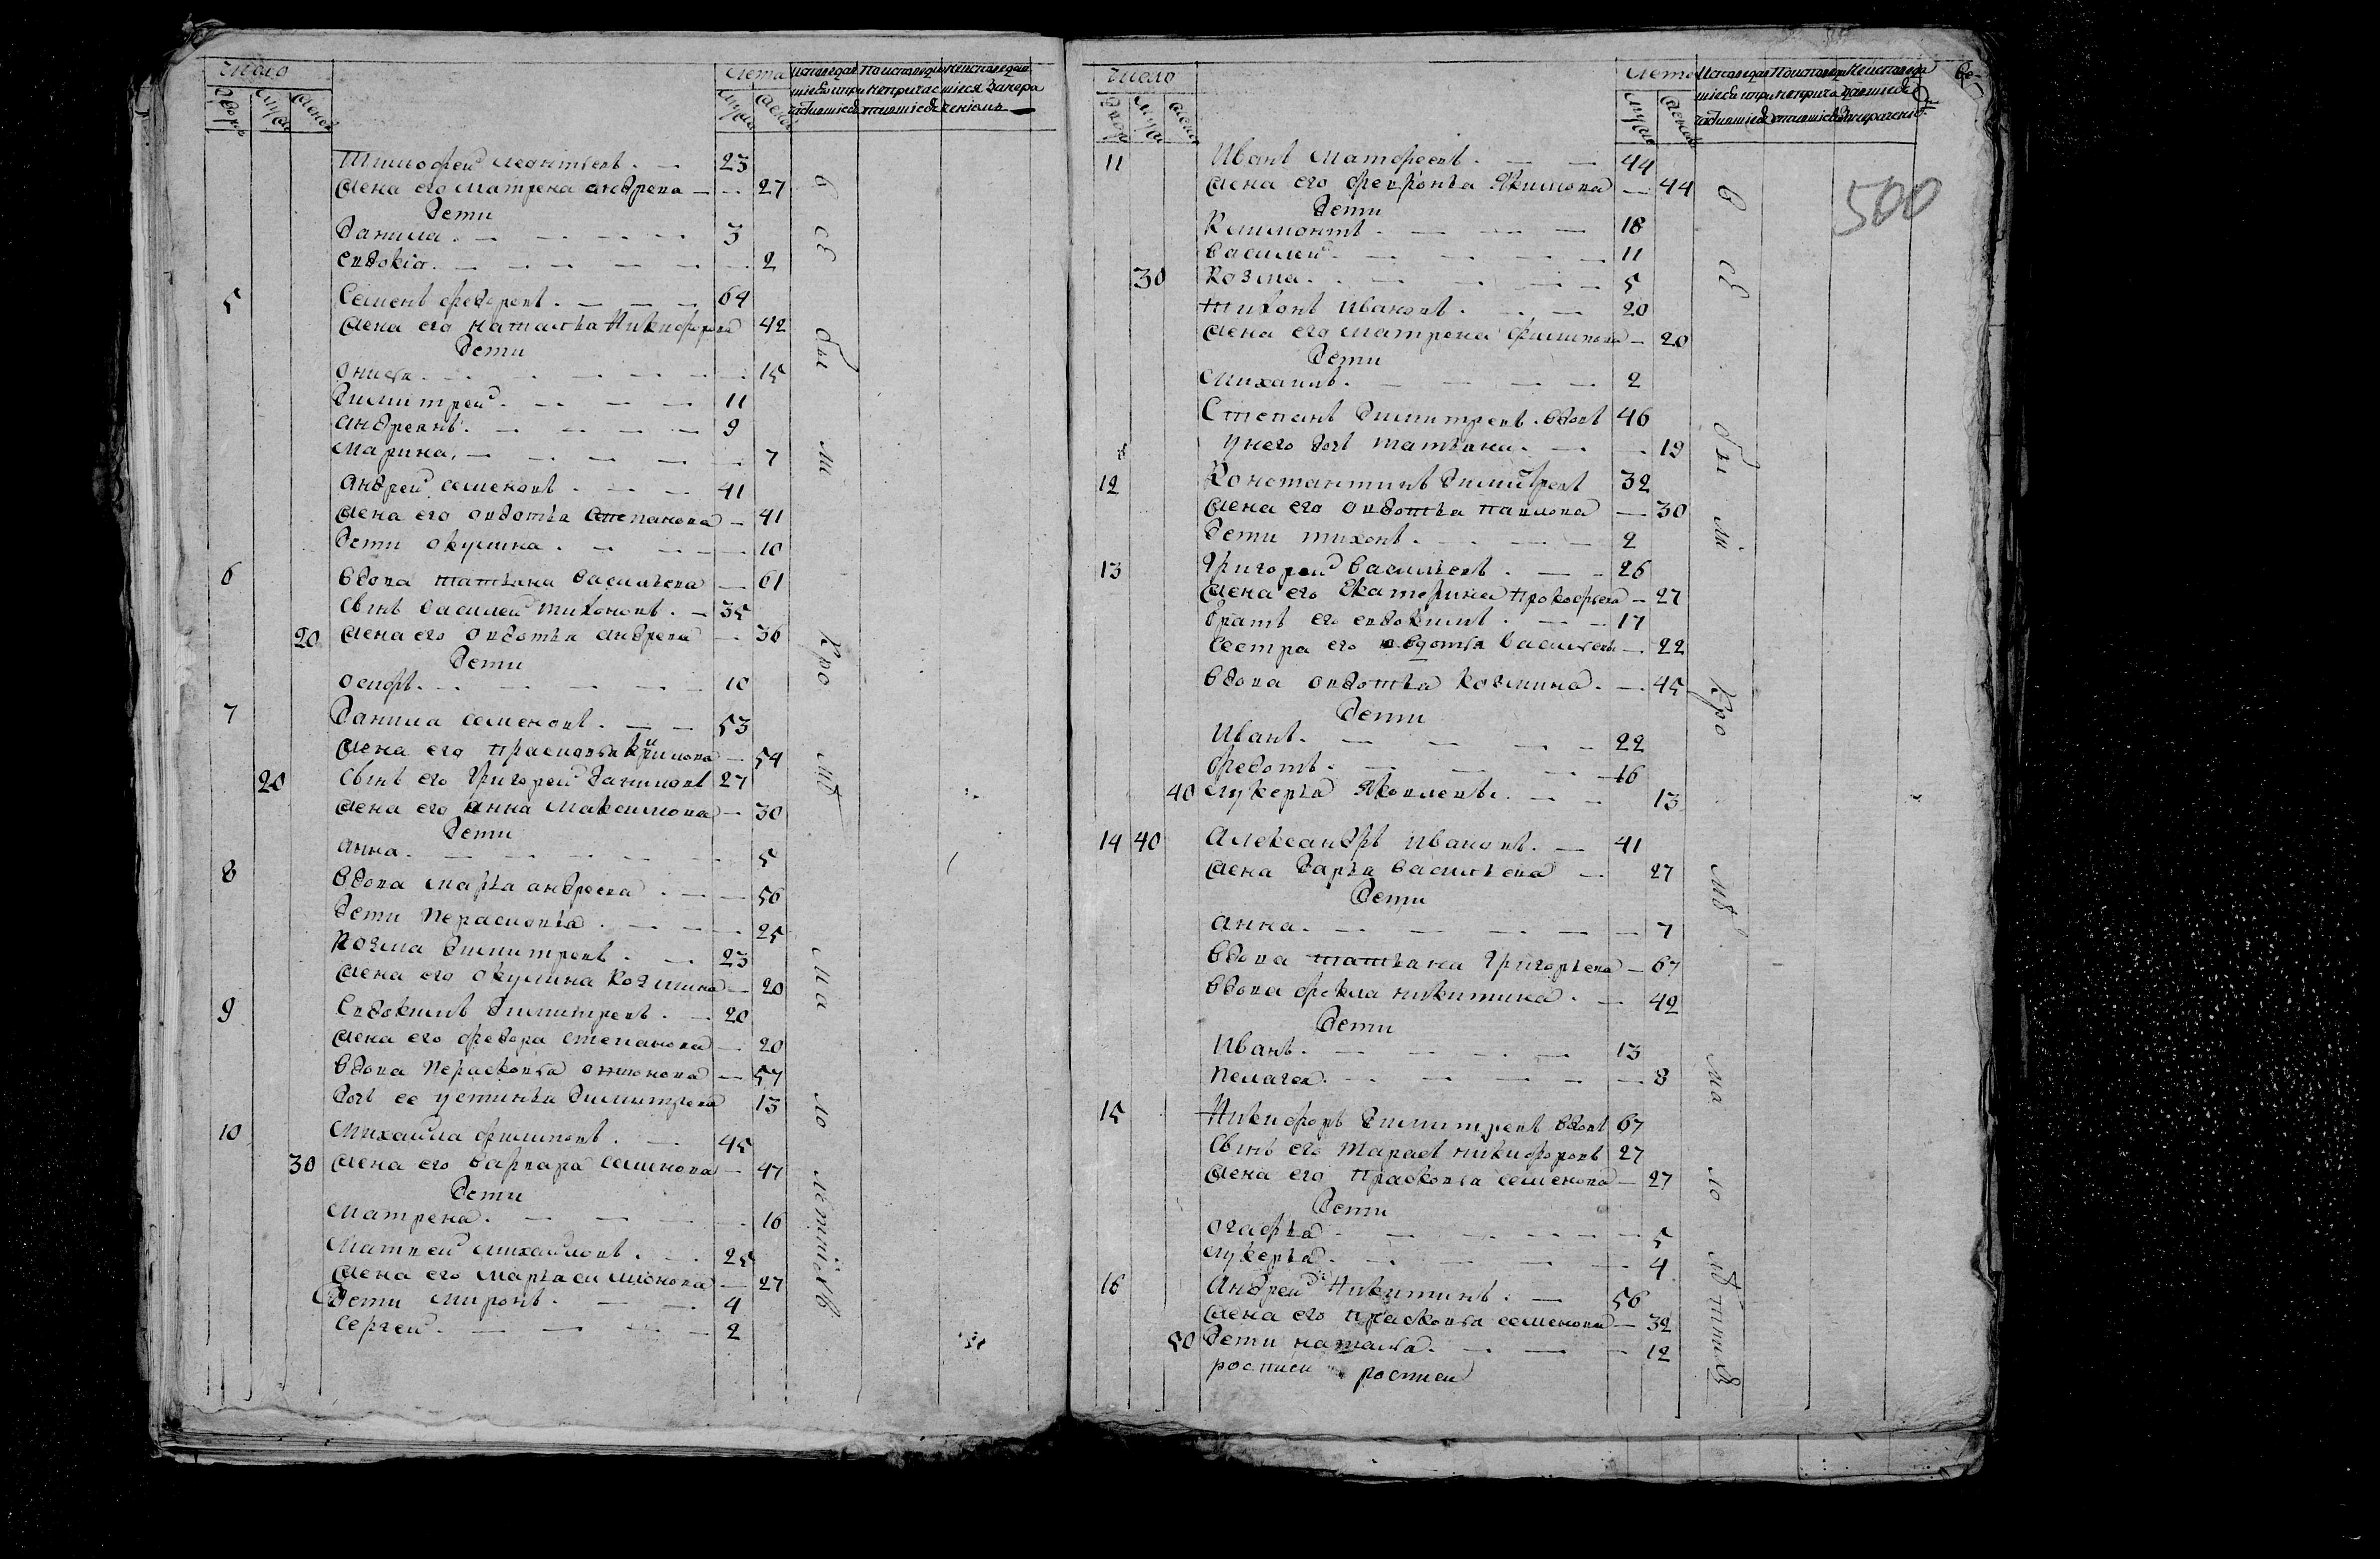 число
лета
исповедав поисповеди неисповедав
шиеся и при непричас шиеся за нера
частившиеся тившиеся чением
дворов
муж
женск
муж
женск
Тимофей Леонтьевъ 23
жена его Матрена Андреева 27
дети
Данила 3
Евдокія 2
5 Семенъ Федоровъ 64
жена его Наталья Никифорова 42
дети
Онисья 15
Димитрей 11
Андреянъ 9
Марина 7
Андрей Семеновъ 41
жена его Овдотья Степанова 41
дети Окулина 10
6 вдова Татьяна Васильева 61
сынъ Василей Тихоновъ 35
20 жена его Овдотья Андреева 36
дети
Осифъ 10
7 Данила Семеновъ 53
жена его Прасковья 54
20 сынъ его Григорей Даниловъ 27
жена его Анна Максимова 30
дети
Анна 5
8 вдова Марья Андреева 56
дети Перасковья 25
Козма Димитревъ 23
жена его Окулина Козмина 20
9 Евдокимъ Димитревъ 20
жена его Федора Степанова 20
вдова Перасковья 57
дочь ее Устинья Димитрева 13
10 Михайла Филиповъ 45
30 жена его Варвара Семенова 47
дети
Матрена 16
Матвей Михайловъ 25
жена его Марья Симионова 27
дети Миронъ 4
Сергей 2
всѣ бы ли кро мѣ ма ло летнихъ
число
лета
Исповедав Поисповеди Неисповеда
шиеся и при неприча вшиеся
частившиеся стившиеся за нерачениемъ
дворов
муж
женск
муж
женск
500
11 Иванъ Матфеевъ 44
жена его Февронья Якимова 44
дети
Климонтъ 18
Василей 11
30 Козма 5
Тихонъ Ивановъ 20
жена его Матрена Филипова 20
дети
Михаилъ 2
Степанъ Димитревъ вдовъ 46
у него дочь Татьяна 19
12 Константинъ Димитревъ 32
жена его Овдотья Павлова 30
дети Тихонъ 2
13 Григорей Васильевъ 26
жена его Екатерина Прокофьева 27
братъ его Евдокимъ 17
сестра его Овдотья Васильева 22
вдова Овдотья Козмина 45
дети
Иванъ 22
Федотъ 16
40 Лукерья Яковлева 13
14 40 Александръ Ивановъ 41
жена Дарья Васильева 27
дети
Анна 7
вдова Татьяна Григорьева 67
вдова Фекла Никитина 42
дети
Иванъ 13
Пелагея 8
15 Никифоръ Димитревъ вдовъ 67
сынъ его Тарасъ Никифоровъ 27
жена его Прасковья Семенова 27
дети
Огафья 5
Лукерья 4
16 Андрей Никитинъ 56
жена его Прасковья Семенова 32
50 дети Наталья 12
росписи росписи
всѣ бы ли кро мѣ ма ло лѣтних